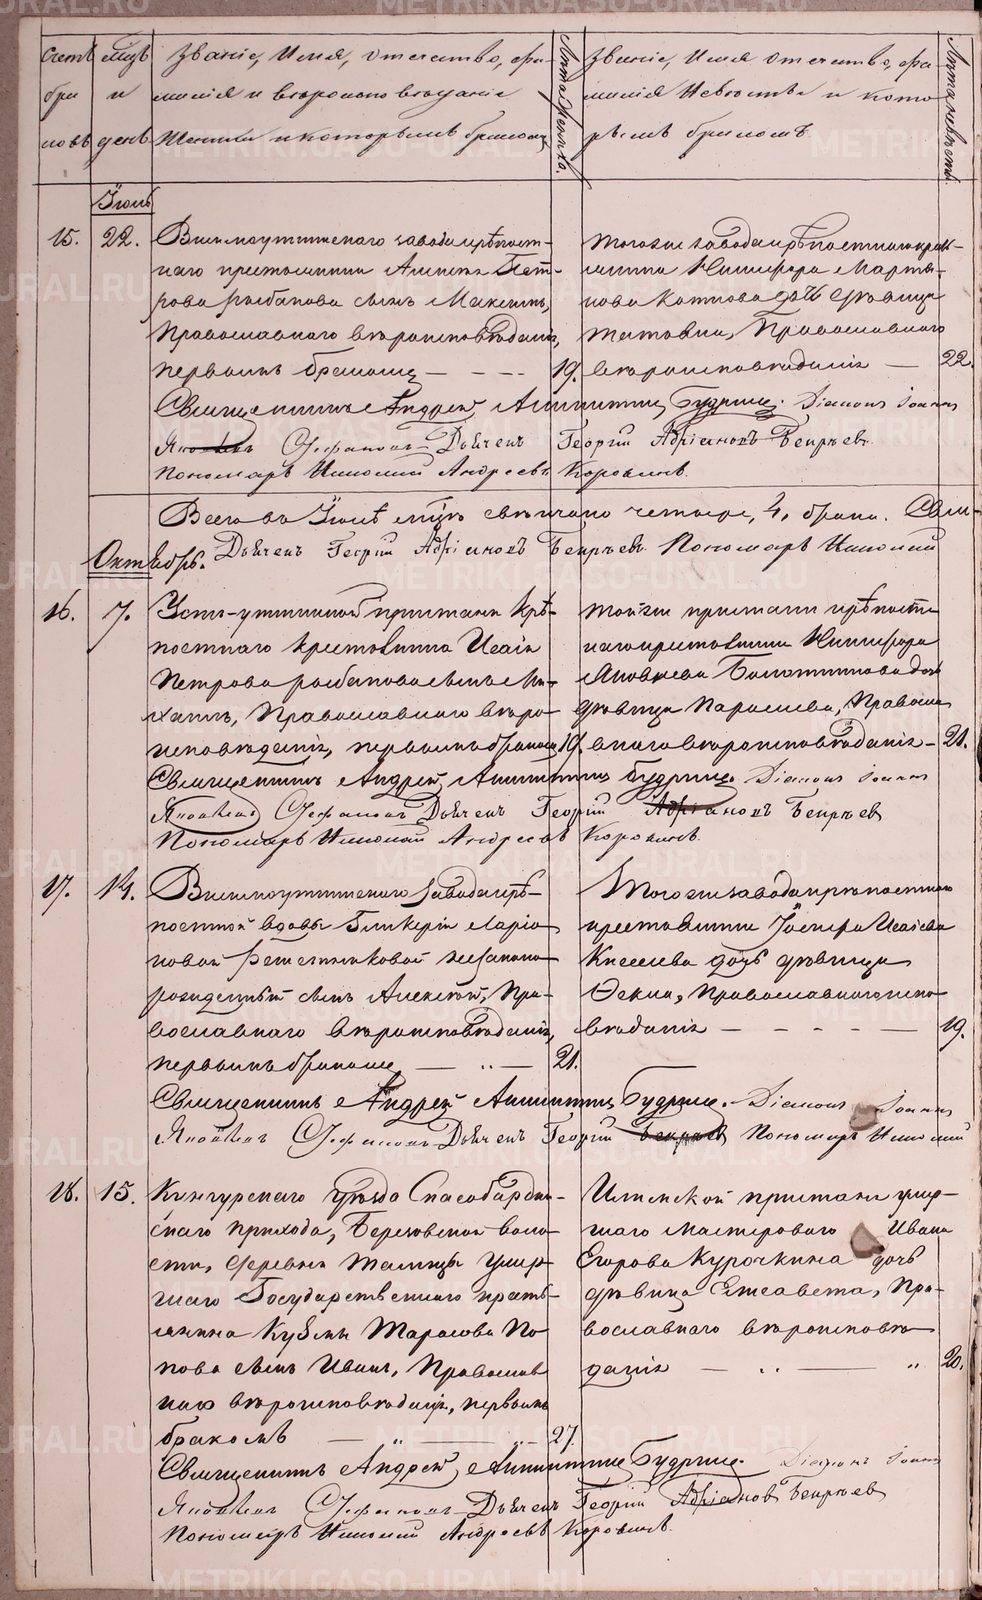 Счетъ браковъ
мѣцъ и день
Званіе, Имя, отчество, фа-
милія и вѣроисповѣданіе
Жениха и которымъ бракомъ
Лѣта Жениха.
Званіе, Имя отчество, фа-
милія Невѣсты и кото
рымъ бракомъ
Лѣта невѣсты.
Іюль
15. 22. Висимоуткинскаго завода крѣпост-
наго крестьянина
рова рыбакова сынъ Максимъ,
Православнаго вѣроисповѣданія,
первымъ бракомъ — - - - 19.
тогоже завода крѣпостнаго кресть-
янина Никифора Марты-
нова дочь дѣвица
Православнаго
вѣроисповѣданія — 22.
Священникъ Андрей Будрин. Діаконъ Іоаннъ
Яковлевъ Стефановъ Дьячекъ Георгій Адріановъ
Пономарь Николай Андреевъ Коровинъ
Всего въ Іюлѣ мѣцѣ свѣнчано четыре, 4, брака. Свящ-
Октябрь. Дьячекъ Георгій Адріановъ Пономарь Николай
16. 7. Усть-уткинской пристани крѣ-
постнаго крестьянина Исаія
Петрова рыбакова сынъ Ми-
хаилъ, Православнаго вѣро-
исповѣданія, первымъ бракомъ 19.
тойже пристани крѣпост-
наго крестьянина Никифора
Яковлева дочь
дѣвица Параскева, Правосла
внаго вѣроисповѣданія - 21.
Священникъ Андрей Будрин. Діаконъ Іоаннъ
Яковлевъ Стефановъ Дьячекъ Георгій Адріановъ
Пономарь Николай Андреевъ Коровинъ.
17. 14. Висимоуткинскаго завода крѣ-
постной вдовы Гликеріи Иларіо-
новой Решетниковой незаконо-
рожденный сынъ Алексѣй, Пра-
вославнаго вѣроисповѣданія,
первымъ бракомъ — " — 21.
Тогоже завода крѣпостнаго
крестьянина Іосифа Исаіева
Киселева дочь дѣвица
Ѳекла, Православнаго испо-
вѣданія — - - - - — 19.
Священникъ Андрей Будрин. Діаконъ Іоаннъ
Яковлевъ Стефановъ Дьячекъ Георгій Пономарь Николай
18. 15. Кунгурскаго уѣзда Спасобардин-
скаго прихода, Березовской воло-
сти, деревни Талицы умер-
шаго Государственнаго кресть-
янина Кузьмы Тарасова По-
пова сынъ Иванъ, Православ
наго вѣроисповѣданія, первымъ
бракомъ — " — " - 27.
Илимской пристани умер-
шаго мастероваго Ивана
Егорова Курочкина дочь
дѣвица Елисавета, Пра-
вославнаго вѣроисповѣ
данія — .. — " 20.
Священникъ Андрей Будрин. Діаконъ Іоаннъ
Яковлевъ Стефановъ Дьячекъ Георгій Адріановъ
Пономарь Николай Андреевъ Коровинъ.
METRIKI.GASO-URAL.RU